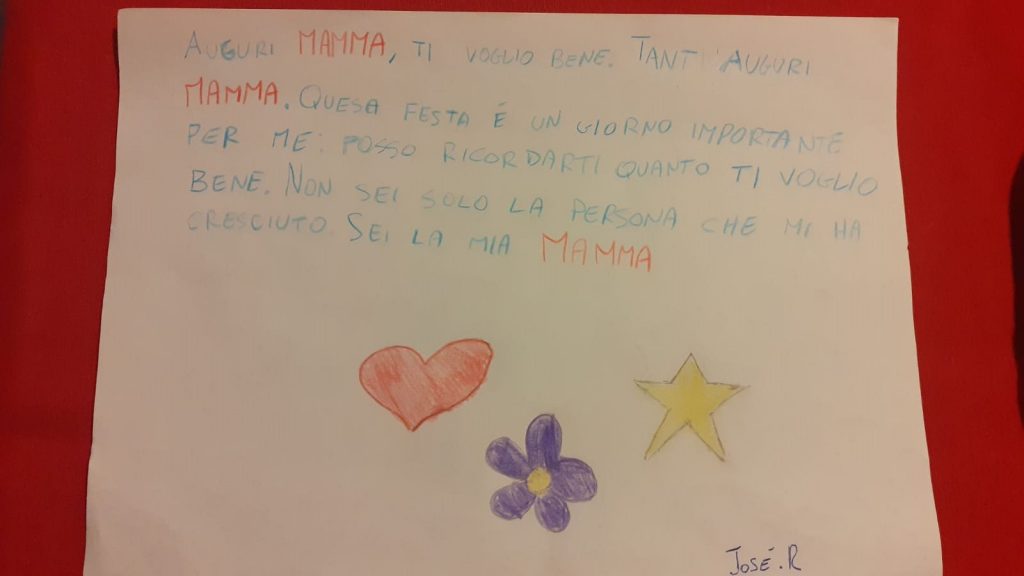 AUGURI MAMMA, TI VOGLIO BENE. TANTI AUGURI
MAMMA. QUESA FESTA É UN GIORNO IMPORTANTE
PER ME: POSSO RICORDARTI QUANTO TI VOGLIO
BENE. NON SEI SOLO LA PERSONA CHE MI HA
CRESCIUTO. SEI LA MIA MAMMA
JOSÉ.R